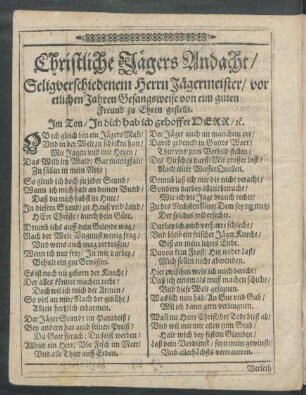 Christliche Jägers Andacht/
Seligverschiedenem Herrn Jägermeister/ vor
etlichen Jahren Gesangsweise von ein guten
Freund zu Ehren gestellt.
Im Ton/ In dich hab ich gehoffet HERR/ ꝛc.
OB ich gleich bin ein Jägers Mañ/
Und in der Welt
Mit Jagen und mit Hetzen/
Das Wild im Wald/
Zu fällen in mein Netz:
So glaub ich doch
Wann ich mich halt an deinen Bund/
Daß du mich hast
In diesem Stand/
HErr Christe/ durch dein Güte.
Drumb ichs auff dein Gnade wag/
Nach der Welt
Und wens auch mag verdriessen/
Wenn ich nur frey/
Behalt ein gut Gewissen.
Es ist noch nie geborn der Knecht/
Der alles könne machen recht/
Doch wil ich mich der
So viel an mir/ Nach der gebühr/
Allzeit hertzlich erbarmen.
Der Jäger Stand ist im Paradeiß/
Bey andern hat auch seinen Preiß/
Da Gott sprach: Du solst werden
Allhier ein Herr/ Der Fisch im Meer/
Und alle Thier auff Erden.
Der Jäger auch an manchem ort/
David gedenckt in Gottes Wort/
Thut uns zum Vorbild stellen/
Des Hirsches durst/ Mit grosser lust/
Nach einer Wasser Quellen.
Drumb laß ich mir die nicht veracht/
Sondern darbey allzeit betracht/
Wie ich die Jagt brauch rechte/
Zu des Nechsten Nutz/ Dem sey trutz/
Der solches widerfechte.
Darbey ich auch verharre schlecht/
Und bleib ein frischer Jäger Knecht/
Biß an mein letztes Ende.
Davon kein Frost/ Hitz oder last/
Mich sollen nicht abwenden.
Hierzwischen weis ich mich bericht/
Daß ich einsmals muß machen schicht/
Und diese Welt gesegnen.
Was ich nun hab/ An Gut und Gab/
Wil ich dann gern verleugnen.
Wañ nu Herr Christ der Todt bläst ab/
Und wil mir nur eilen zum Grab/
Hair mich bey festem Glauben/
laß dein Verdienst/ seyn mein gewinst/
Und allerhöchsts vertrauwen.
Verleih